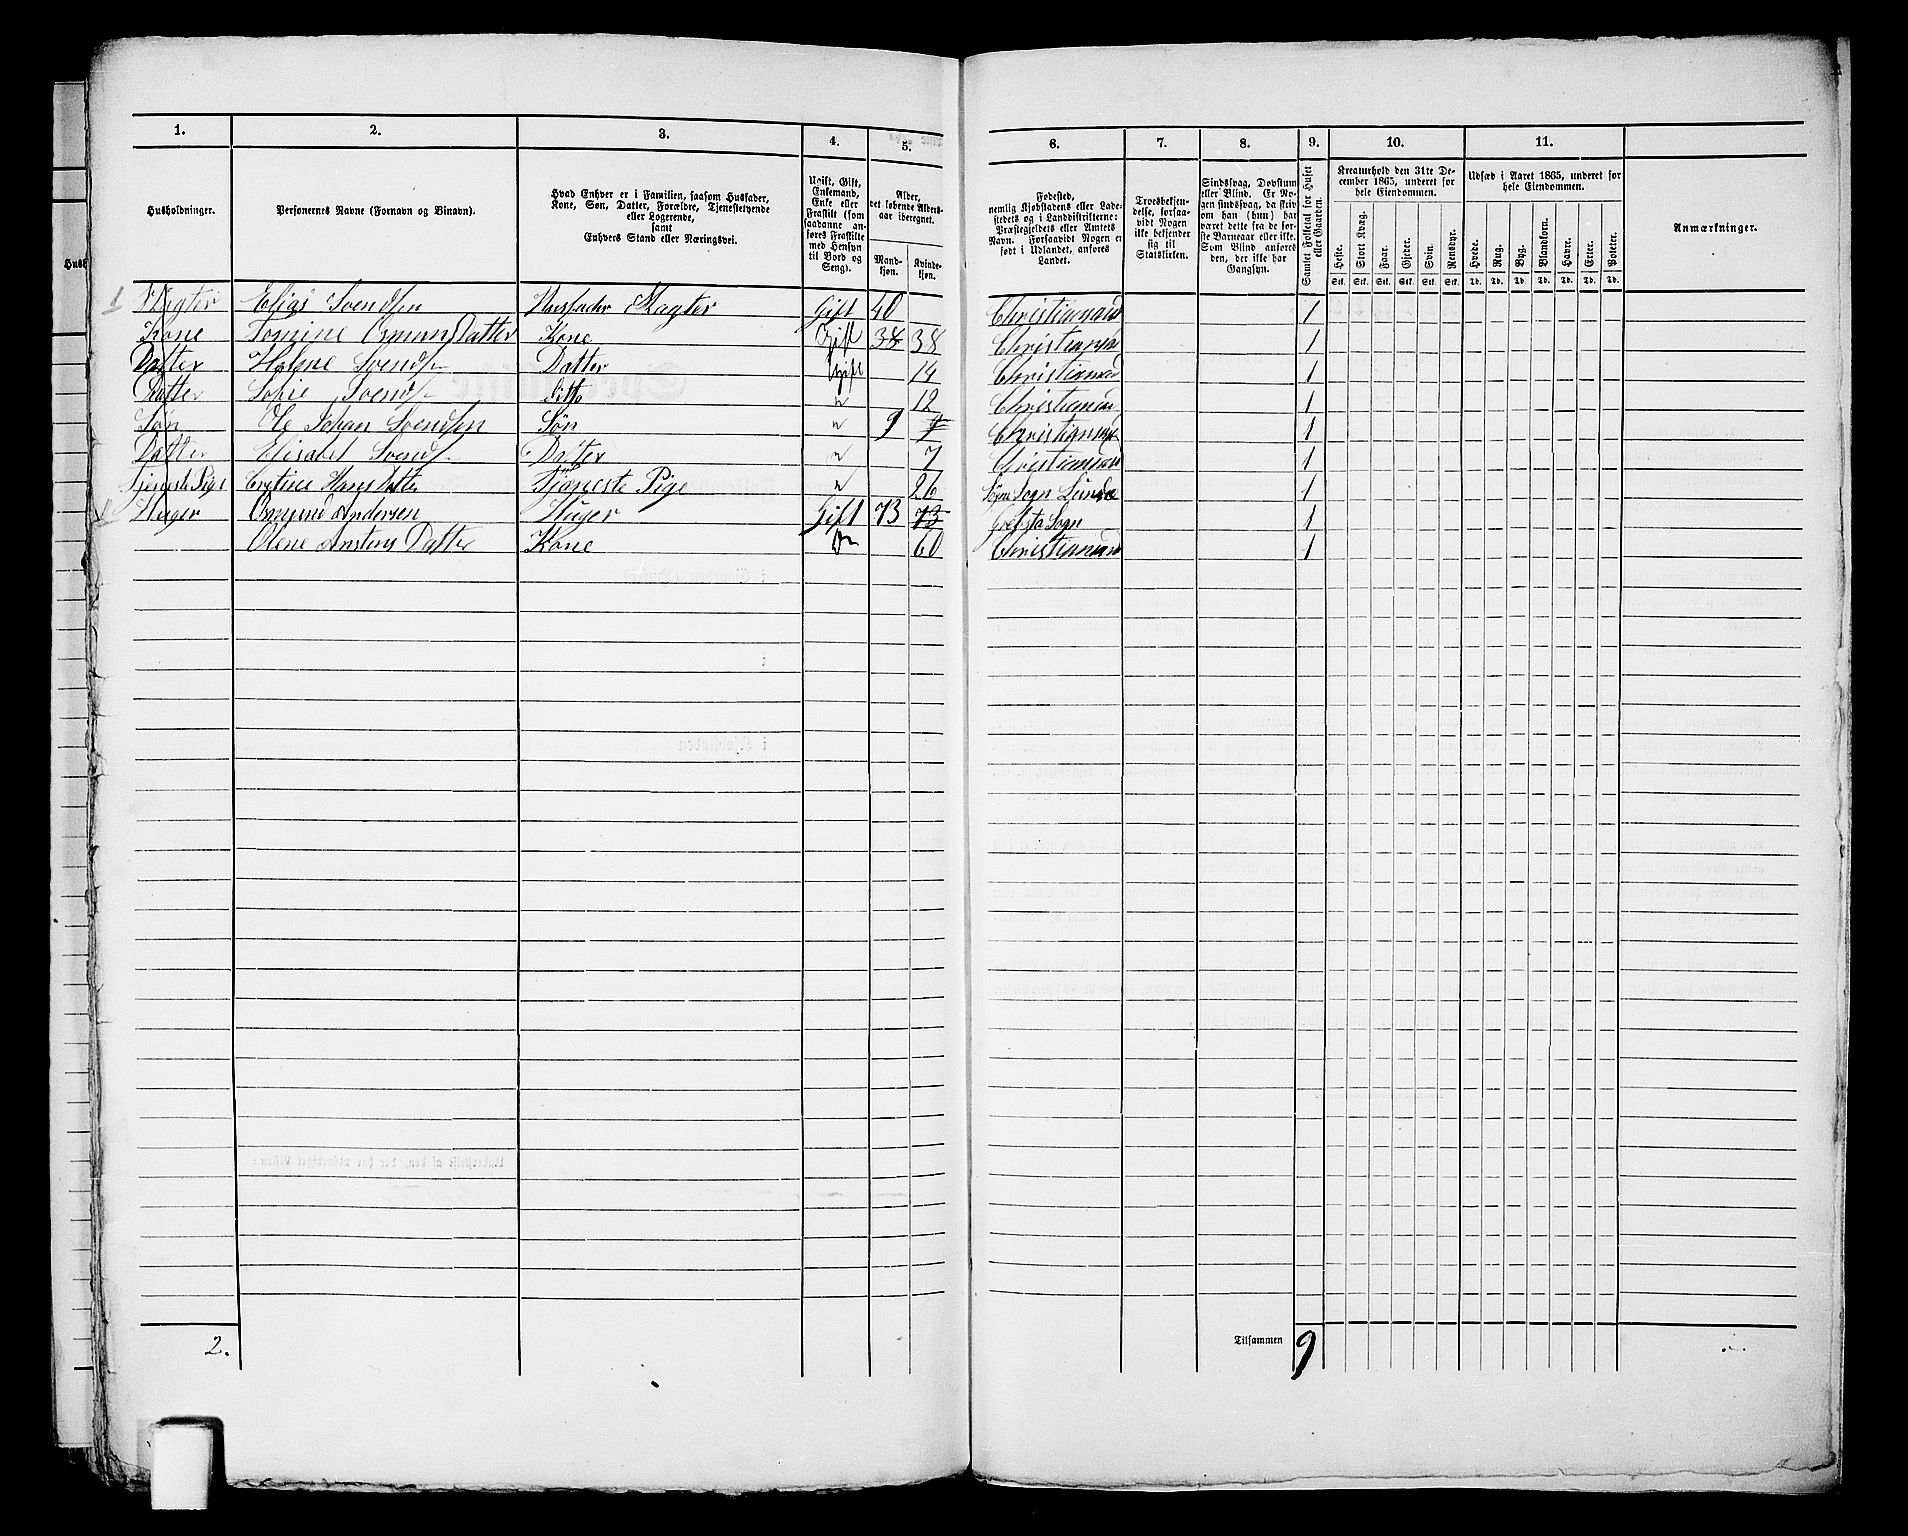 1. 2. 3. 4. 5. 6. 7. 8. 9. 10. 11.
Husholdninger.
Personernes Navne (Fornavn og Binavn).
Hvad Enhver er i Familien, saasom Husfader,
Kone, Søn, Datter, Forældre, Tjenestetyende
eller Logerende,
samt
Enhvers Stand eller Næringsvei.
Ugift, Gift,
Enkemand,
Enke eller
Fraskilt (som
saadanne an-
føres Fraskilte
med Hensyn
til Bord og
Seng).
Alder,
det løbende Alders-
aar iberegnet.
Mand-
kjøn.
Kvinde-
kjøn.
Fødested,
nemlig Kjøbstadens eller Lade-
stedets og i Landdistrikterne:
Præstegjeldets eller Amtets
Navn. Forsaavidt Nogen er
født i Udlandet, anføres
Landet.
Troesbekjen-
delse, forsaa-
vidt Nogen
ikke bekjender
sig til
Statskirken.
Sindssvag, Døvstum
eller Blind. Er No-
gen sindssvag, da skriv
om han (hun) har
været dette fra de før-
ste Barneaar eller ikke.
Som Blind anføres
den, der ikke har
Gangsyn.
Samlet Folketal for Huset
eller Gaarden.
Kreaturhold den 31te De-
cember 1865, underet for
hele Eiendommen.
Heste. Stort Kvæg. Faar. Gjeder. Svin. Rensdyr.
Stk. Stk. Stk. Stk. Stk. Stk.
Udsæd i Aaret 1865, underet for
hele Eiendommen.
Hvede. Rug. Byg. Blandkorn. Havre. Erter. Poteter.
Td. Td. Td. Td. Td. Td. Td.
Anmærkninger.
Elias Svendsen Husfader Slagter Gift 40 Christiansand 1
Kone Tomine OsmunsDatter Kone Gift 38 38 Christiansand 1
Datter Svends Datter Ugift 14 Christiansand 1
Datter Sofie Svends ditto " 12 Christiansand 1
Søn Ole Johan Svendsen Søn " 9 Christiansand 1
Datter Elisabet Svends Datter " 7 Christiansand 1
Tjeneste Pige Hansdatter Tjeneste Pige " 26 Sogn 1
Osmund Andersen Gift 73 73 Sogn 1
Olene Datter Kone 60 Christiansand 1
2.
Tilsammen 9